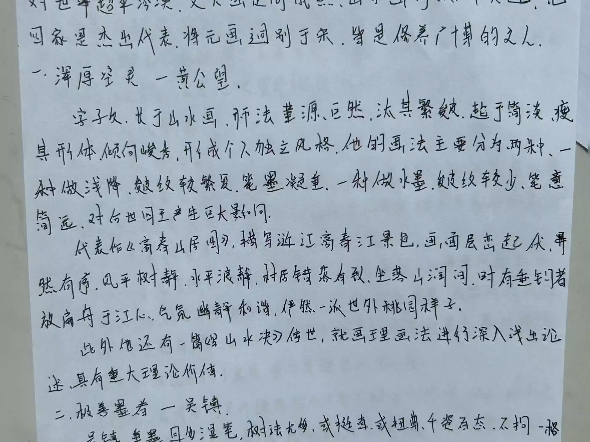 四家是杰出代表,将元画迥别于宋,皆是修养广博的文人.
一.浑厚空灵 — 黄公望.
字子久,长于山水画,师法董源、巨然,汰其繁皴,趋于简淡,瘦
其形体,倾向峻秀,形成个人独立风格,他的画法主要分为两种,一
种做浅绛,皴纹较繁复,笔墨凝重,一种做水墨,皴纹较少,笔意
简远,对后世四王产生巨大影响.
代表作《富春山居图》,描写浙江富春江景色,画面层峦起伏,
然有序,风平树静,水平浪静,村居错落有致,坐落山涧间,时有垂钓者
放扁舟于江心,气氛幽静和谐,俨然一派世外桃园样子.
此外他还有一篇《写山水决》传世,就画理画法进行深入浅出论
述,具有重大理论价值.
二. 善墨者 — 吴镇.
吴镇 湿笔,树法尤多,或挺直,或扭曲,千姿百态,不拘一格